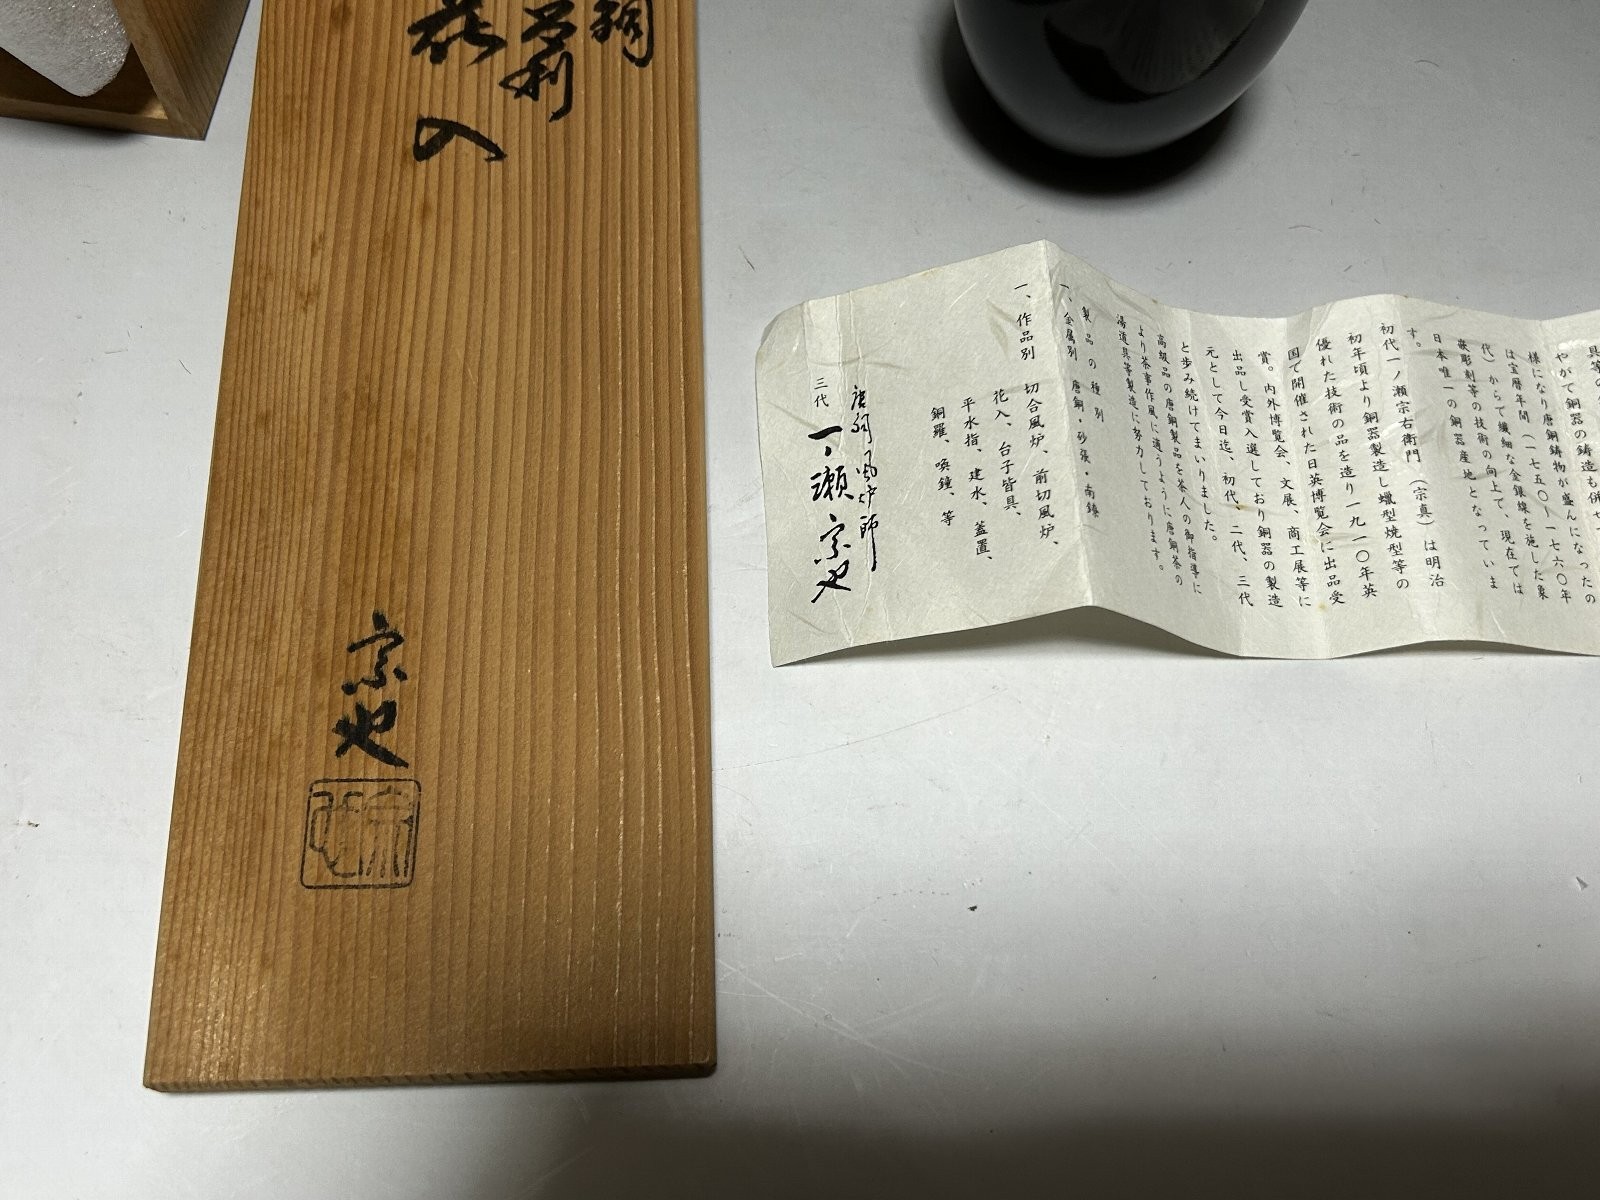 銅
曽利
花入
宗也
具等の
やがて銅器の鋳造も併せ
様になり唐銅鋳物が盛んになったの
は宝暦年間（一七五〇〜一七六〇年
代）からで繊細な金銀線を施した象
嵌彫刻等の技術の向上で、現在では
日本唯一の銅器産地となっていま
す。
初代一ノ瀬宗右衛門（宗真）は明治
初年頃より銅器製造し蠟型焼型等の
優れた技術の品を造り一九一〇年英
国で開催された日英博覧会に出品受
賞。内外博覧会、文展、商工展等に
出品し受賞入選しており銅器の製造
元として今日迄、初代、二代、三代
と歩み続けてまいりました。
高級品の唐銅製品を茶人の御指導に
より茶事作風に適うように唐銅茶の
湯道具等製造に努力しております。
製品の種別
一、金属別　唐銅・砂張・南鐐
一、作品別　切合風炉、前切風炉、
花入、台子皆具、
平水指、建水、蓋置、
銅羅、喚鐘、等
唐銅風炉師
三代　一ノ瀬宗也